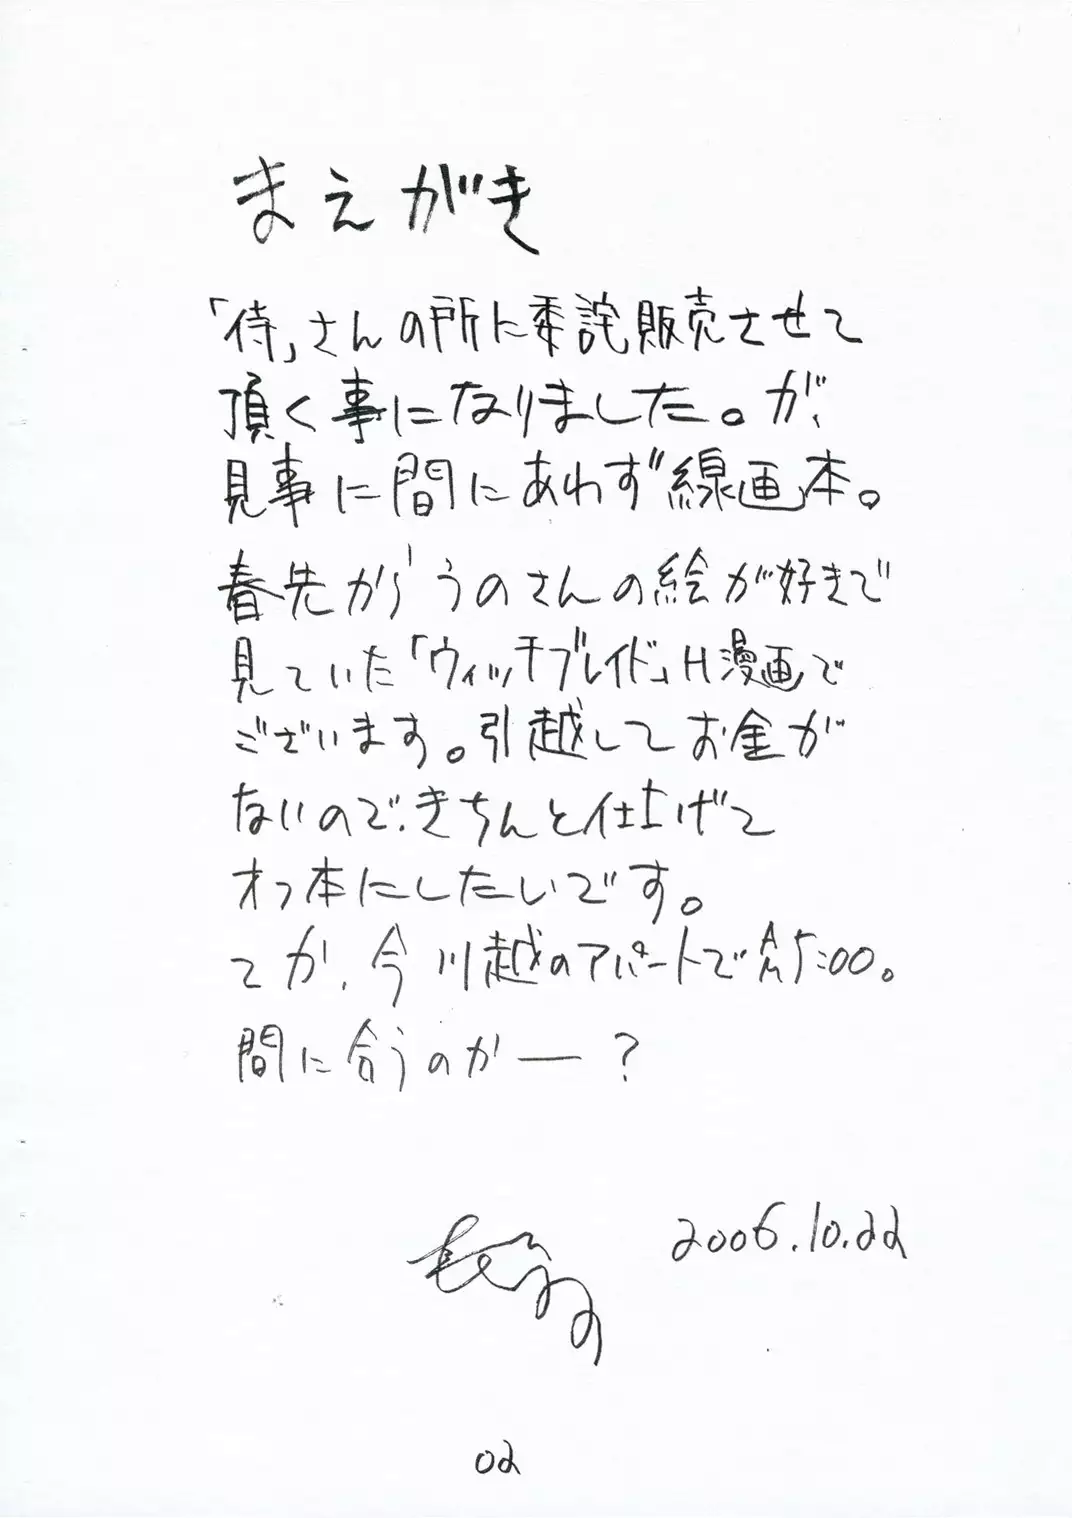 まえがき
「侍」さんの所に委託販売させて
頂く事になりました。が、
見事に間にあわず線画本。
春先から、うのさんの絵が好きで
見ていた「ウィッチブレイド」H漫画で
ございます。引越してお金が
ないので、きちんと仕上げて
オフ本にしたいです。
てか、今川越のアパートでAM5:00。
間に合うのかー?
2006.10.22
02